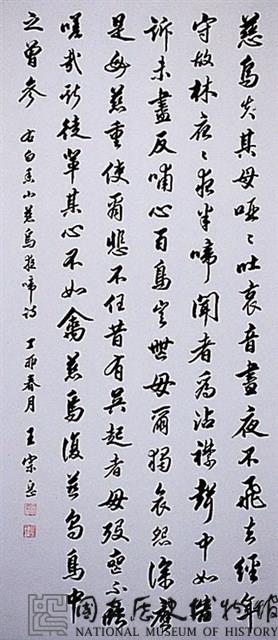 慈烏失其母啞々吐哀音晝夜不飛去經年
守故林夜々夜半啼聞者為沾襟聲中如告
訴未盡反哺心百鳥豈無母爾獨哀怨深應
是母慈重使爾悲不任昔有吳起者母歿喪不臨
嗟哉斯徒輩其心不如禽慈烏復慈烏鳥中
之曾參 右白香山慈烏夜啼詩 丁卯春月 王宗
國立歷史博物館
NATIONAL MUSEUM OF HISTORY